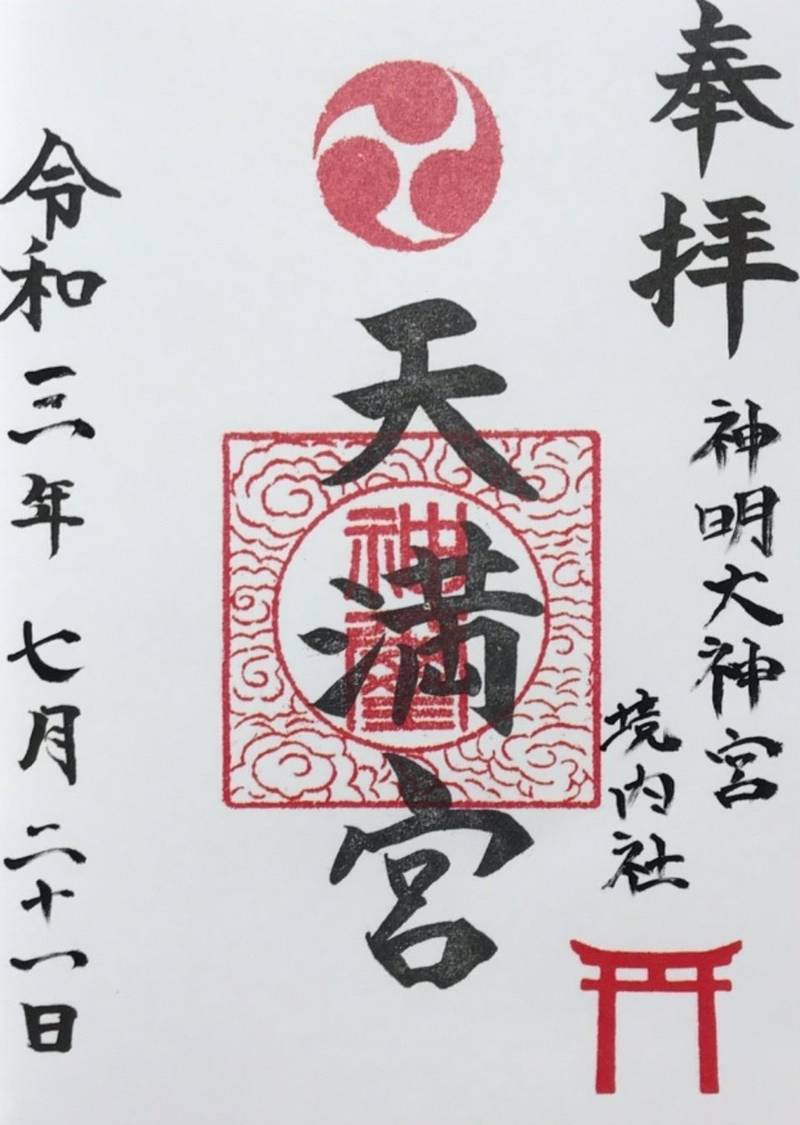 奉拝
神明大神宮
境内社
天満宮
令和三年 七月 二十一日